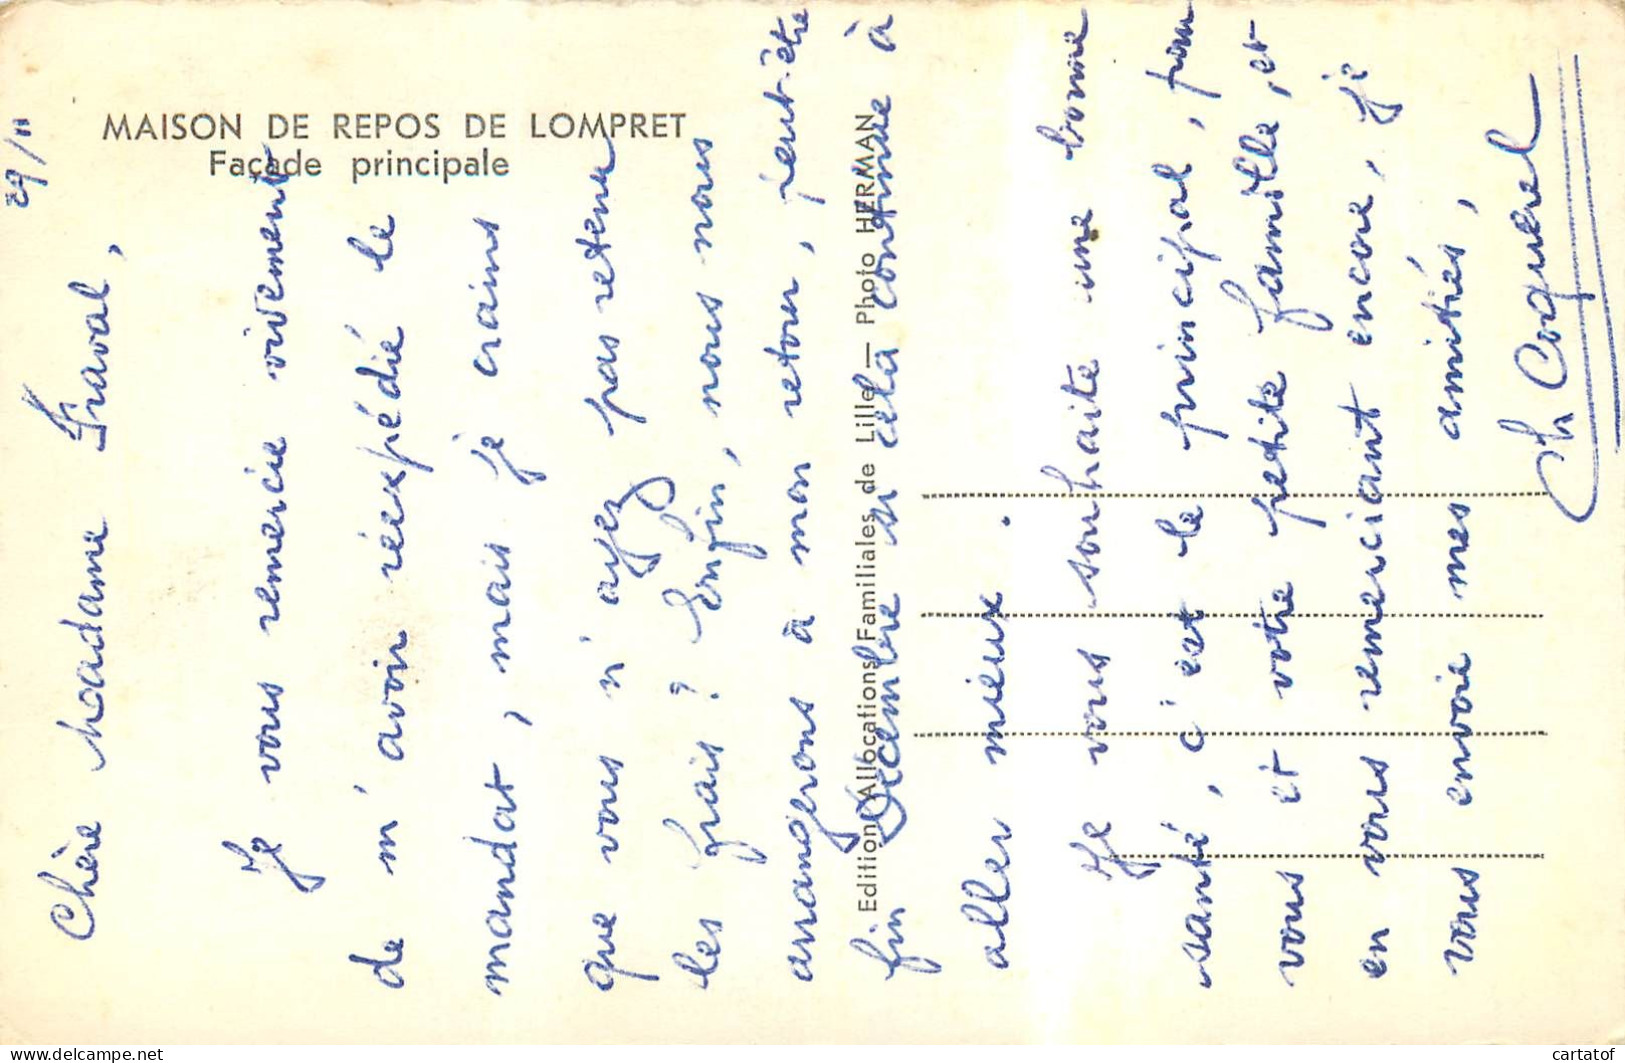 MAISON DE REPOS DE LOMPRET
Façade principale
Edition Allocations Familiales de Lille — Photo HERMAN
29/11
Chère Madame Fraval,
Je vous remercie vivement
de m'avoir réexpédié le
mandat, mais je crains
que vous n'ayez pas retenu
les frais ? Enfin, nous nous
arrangerons à mon retour, peut-être
fin Décembre si cela continue à
aller mieux.
Je vous souhaite une bonne
santé, c'est le principal, pour
vous et votre petite famille, et
en vous remerciant encore, je
vous envoie mes amitiés,
Ch Coquerel
cartatof